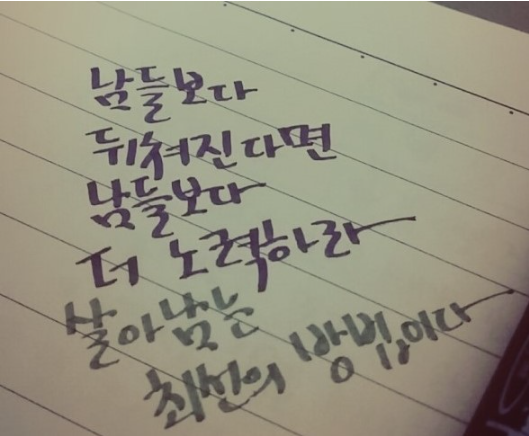 남들보다
뒤쳐진다면
남들보다
더 노력하라
살아남는
최선의 방법이다